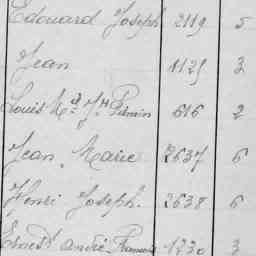 Edouard Joseph 2119 5
Jean 1125 3
Louis M. J. 616 2
Jean Marie 2637 6
Henri Joseph 2638 6
Ernest André 1730 3